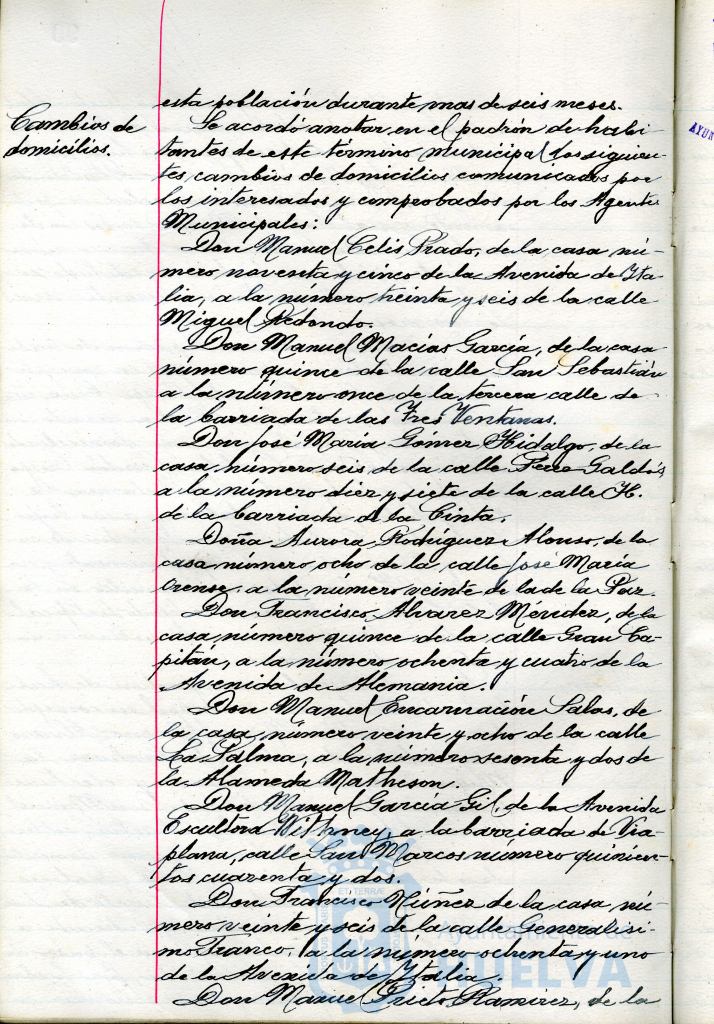 Cambios de
domicilios.
esta población durante mas de seis meses.
Se acordó anotar en el padrón de habi-
tantes de este término municipal los siguien-
tes cambios de domicilios comunicados por
los interesados y comprobados por los Agentes
Municipales:
Don Manuel Celis Prado, de la casa nú-
mero noventa y cinco de la Avenida de Ita-
lia, a la número treinta y seis de la calle
Miguel Redondo.
Don Manuel Macías García, de la casa
número quince de la calle San Sebastián
a la número once de la tercera calle de
la barriada de las Tres Ventanas.
Don José María Gómez Hidalgo, de la
casa número seis de la calle Pérez Galdós,
a la número diez y siete de la calle H.
de la barriada de la Cinta.
Doña Aurora Rodríguez Alonso, de la
casa número ocho de la calle José María
Orense, a la número veinte de la de la Paz.
Don Francisco Alvarez Méndez, de la
casa número quince de la calle Gran Ca-
pitán, a la número ochenta y cuatro de la
Avenida de Alemania.
Don Manuel Encarnación Salas, de
la casa número veinte y ocho de la calle
La Palma, a la número sesenta y dos de
la Alameda Matheson.
Don Manuel García Gil, de la Avenida
Escultora Withney, a la barriada de Via-
plana, calle San Marcos número quinien-
tos cuarenta y dos.
Don Francisco Núñez de la casa nú-
mero veinte y seis de la calle Generalísi-
mo Franco, a la número ochenta y uno
de la Avenida de Italia.
Don Manuel Prieto Ramírez, de la
Ayuntamiento de
HUELVA
AYUN